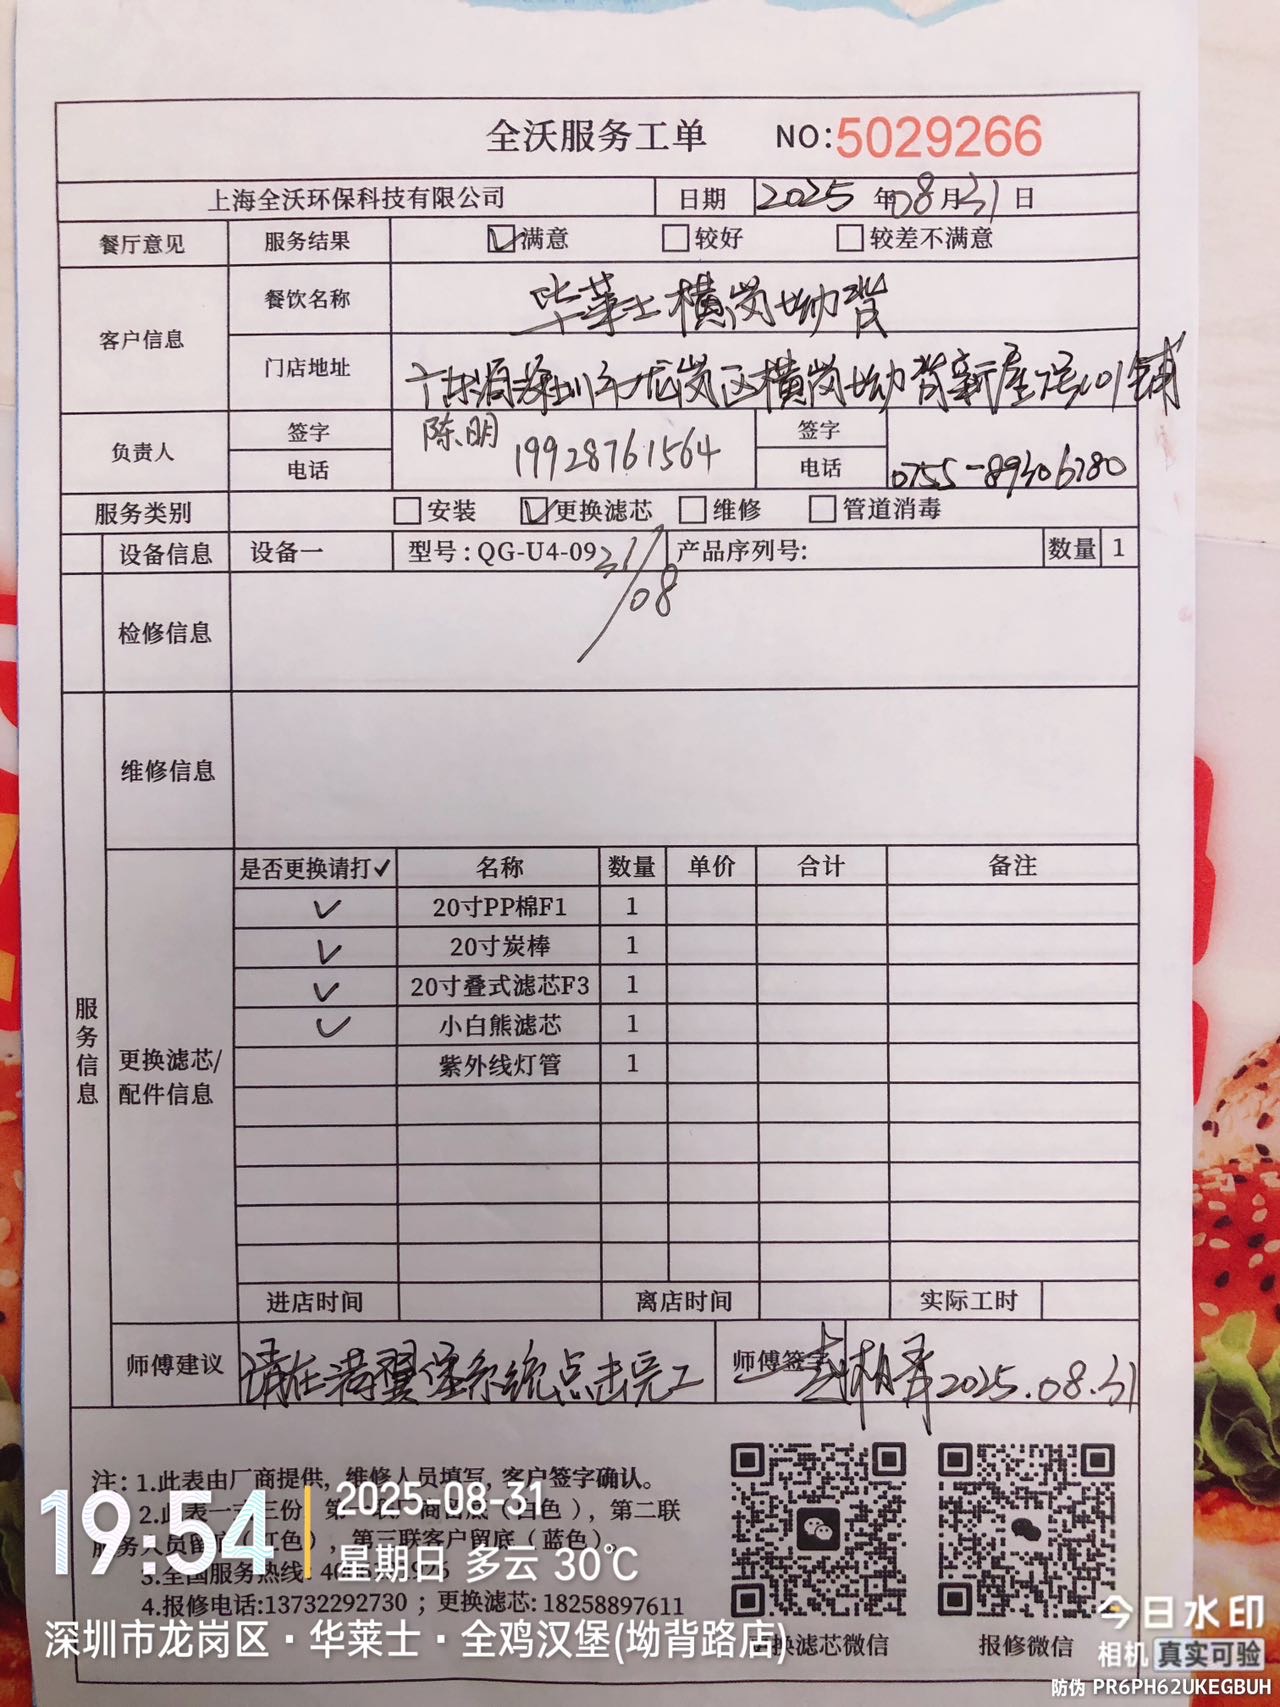 全沃服务工单 NO:5029266
上海全沃环保科技有限公司 日期 2025 年 08 月 31 日
餐厅意见 服务结果 满意 较好 较差不满意
客户信息 餐饮名称 华莱士横岗坳背
门店地址 广东省深圳市龙岗区横岗坳背新屋 号101铺
负责人 签字 陈明 签字
电话 19928761564 电话 0755-89306780
服务类别 安装 更换滤芯 维修 管道消毒
设备信息 设备一 型号:QG-U4-09 产品序列号: 数量 1
31/08
检修信息
维修信息
服务信息
更换滤芯/配件信息
是否更换请打✓ 名称 数量 单价 合计 备注
✓ 20寸PP棉F1 1
✓ 20寸炭棒 1
✓ 20寸叠式滤芯F3 1
✓ 小白熊滤芯 1
紫外线灯管 1
进店时间 离店时间 实际工时
师傅建议 请在满翼宝系统点击完工 师傅签字 2025.08.31
注: 1.此表由厂商提供, 维修人员填写, 客户签字确认。
2.此表一式三份, 第一联厂商留底(白色), 第二联
服务人员留底(红色), 第三联客户留底(蓝色)。
3.全国服务热线:
4.报修电话:13732292730 ; 更换滤芯: 18258897611
更换滤芯微信 报修微信
19:54
2025-08-31
星期日 多云 30℃
深圳市龙岗区·华莱士·全鸡汉堡(坳背路店)
今日水印
相机 真实可验
防伪 PR6PH62UKEGBUH